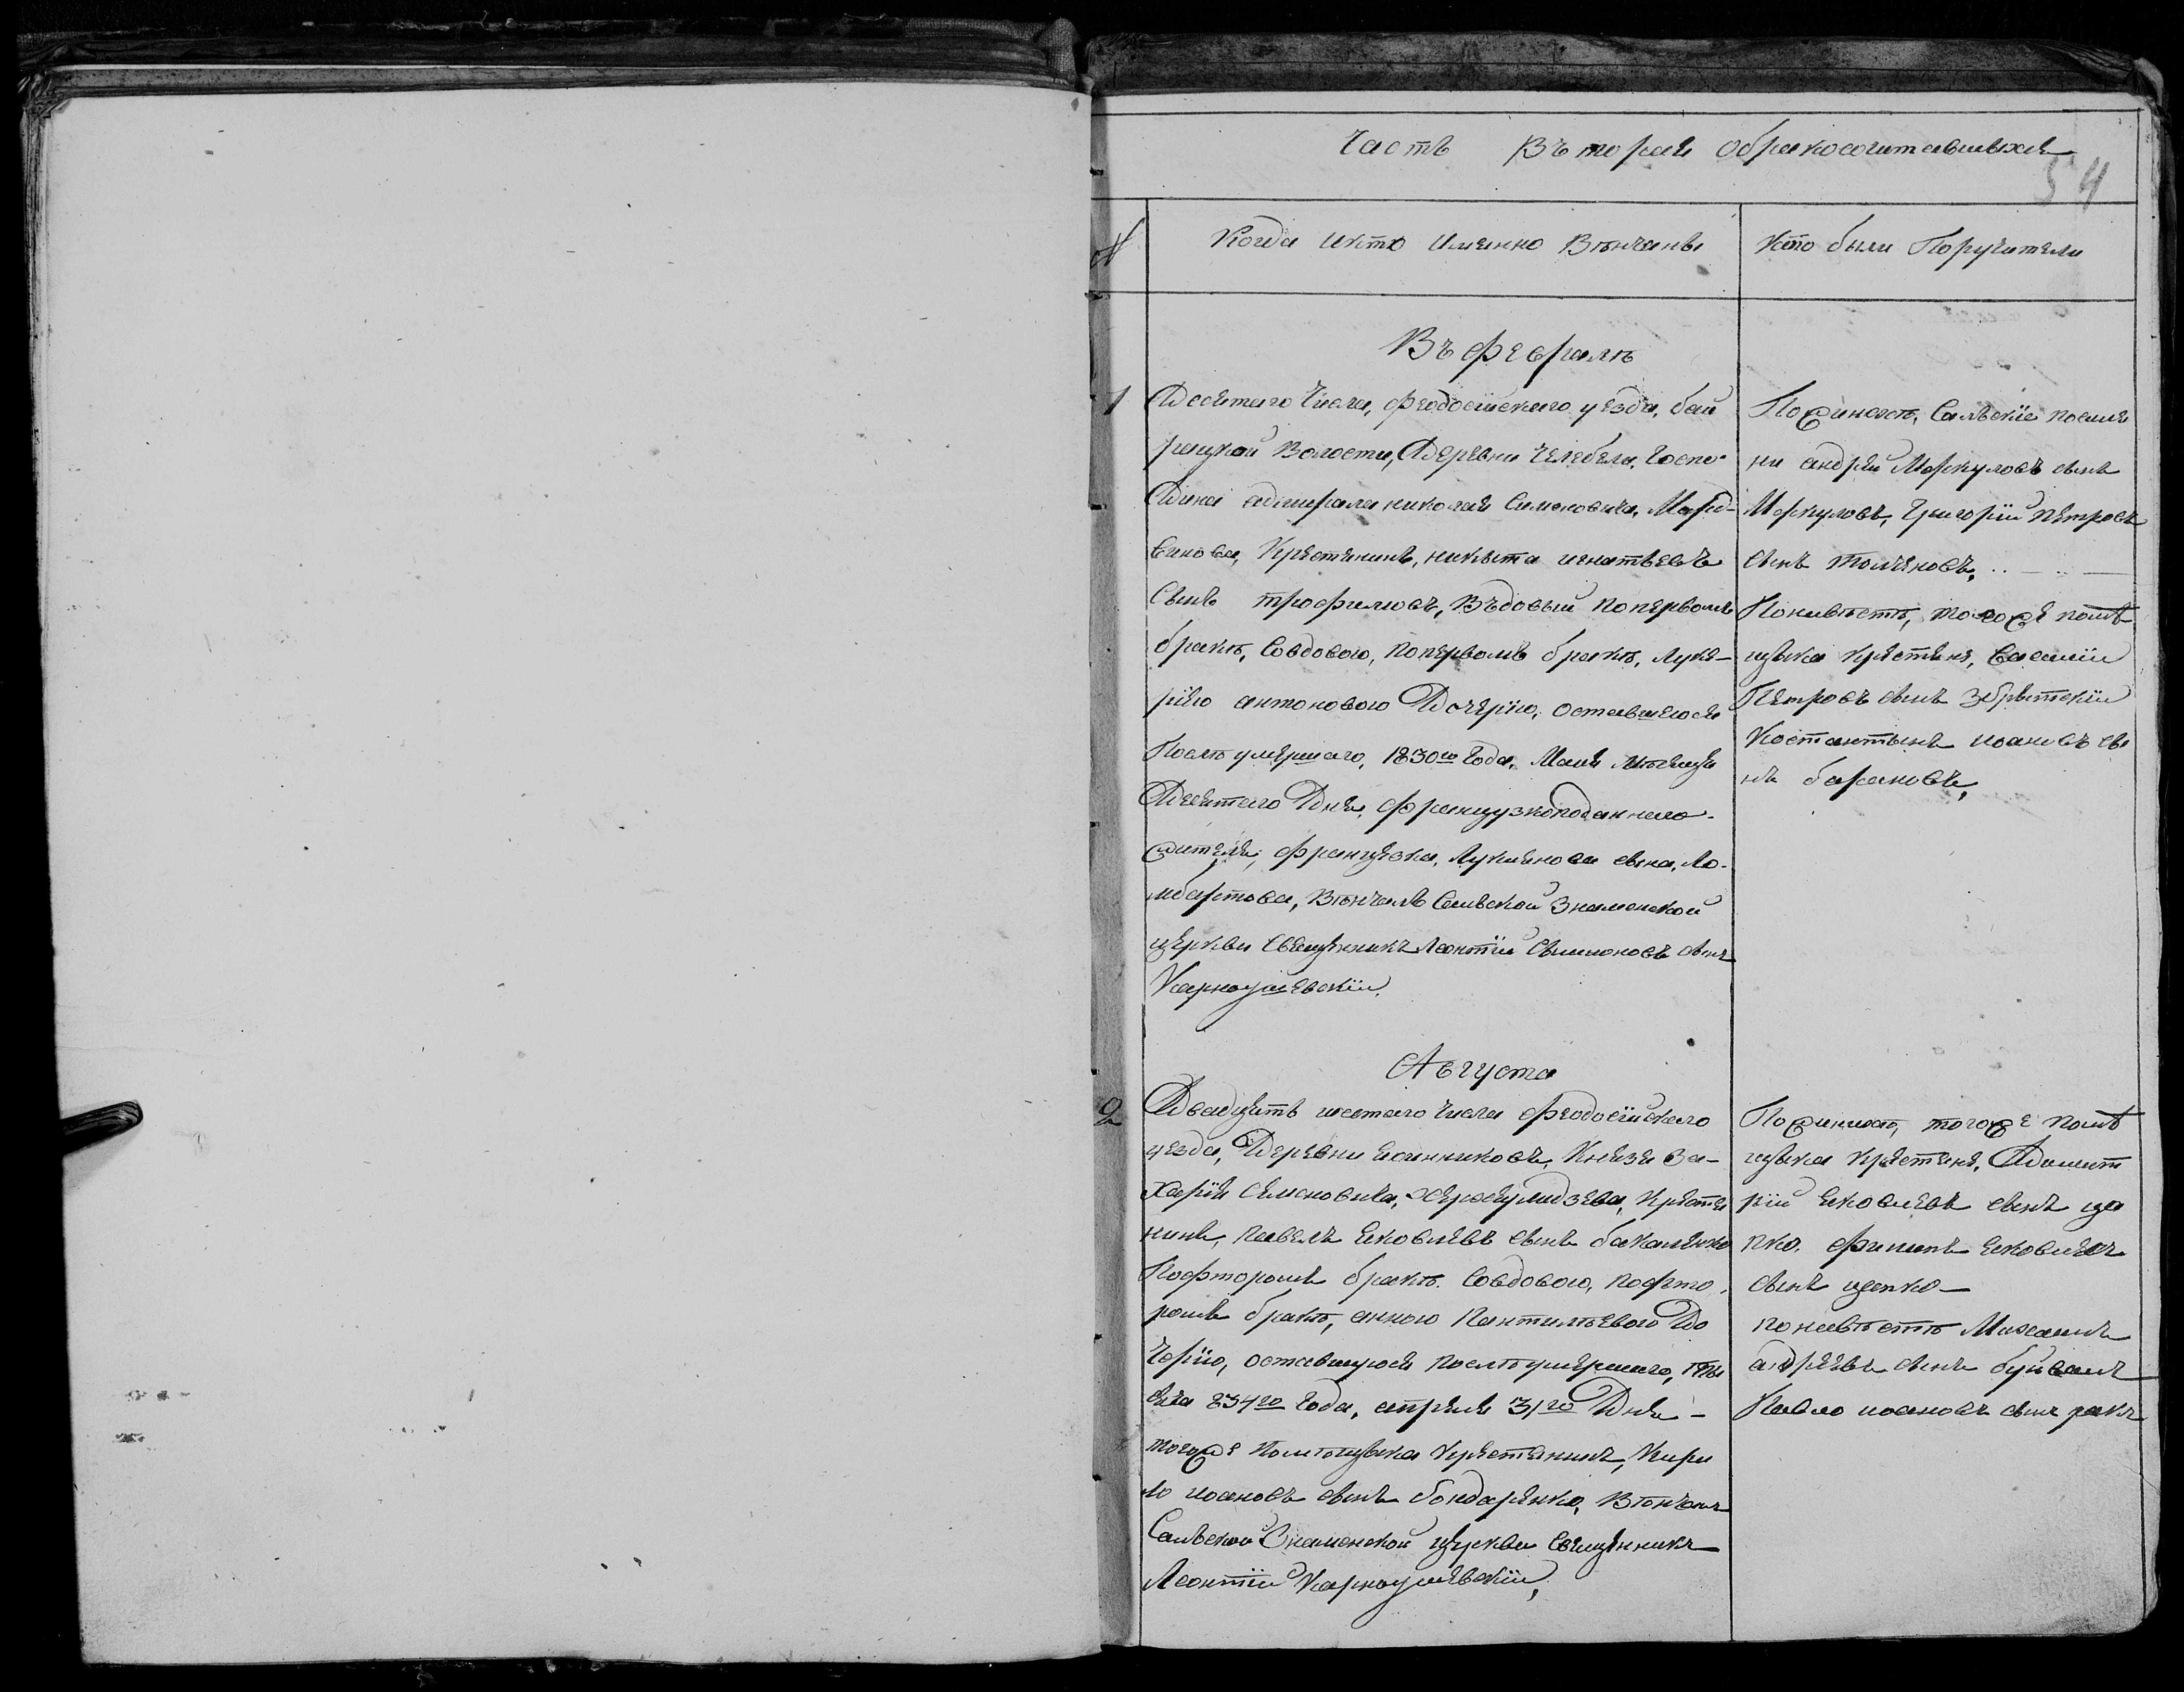 Часть Въторая обракосочитавшыхся
54
№ Когда икто именно Вѣнчаны
Кто были Поручители
Въ февралѣ
1 Десятаго числа, феодосійскаго уезда, бай
рацкой Волости, Деревни Челебели, Госпо-
дина адмирала николая Симоновича, Морд-
винова, Крестянинъ, никыта игнатьевъ
Сынъ трофимовъ, Въдовый поперьвомъ
бракѣ, Совдовою, поперьвомъ бракѣ, луке-
ріею антоновою Дочерію, оставшеюся
Послѣ умершаго, 1830го Года, Маия мѣсяца
Девятаго Дня, французкоподаннаго
жителя, францызка, Лукиянова сына, Ло-
мбартова, Вѣнчалъ Салвской Знаменской
церкви Священникъ Леонтій Сымионовъ сынъ
Карноушевскій.
Поженихѣ, Салвскіе поселя
ни андрей Меркуловъ сынъ
Меркуловъ, Григорій петровъ
сынъ толчановъ,
Поневѣстѣ, тогоже помѣ
щыка крестяне, василій
Петровъ сынъ
Костантынъ иоановъ сы
нъ барановъ,
Августа
2 Двадцать шестаго числа феодосійскаго
уезда, Деревни Князя За-
харія Семеновича, Херхеулидзева, Крестя
нинъ, павелъ яковлевъ сынъ бакаленко
Пофторомъ бракѣ. Совдовою, пофто
ромъ бракѣ, анною Пантилѣевою До
черію, оставшуюся послѣ умершаго,
834го Года, апреля 31го Дня-
тогоже Помѣщыка Крестянинъ, Кири
ло иоановъ сынъ бондаренко, Вѣнчалъ
Салвской Знаменской церкви Священникъ
Леонтій Карноушевскій,
Поженихѣ, тогоже помѣ
щыка крестяне, Димит
рій яковлевъ сынъ ца
пко, филипъ яковлевъ
сынъ цапко-
поневѣстѣ Михаилъ
андреевъ сынъ буйвалъ
Павло иоановъ сынъ ракъ